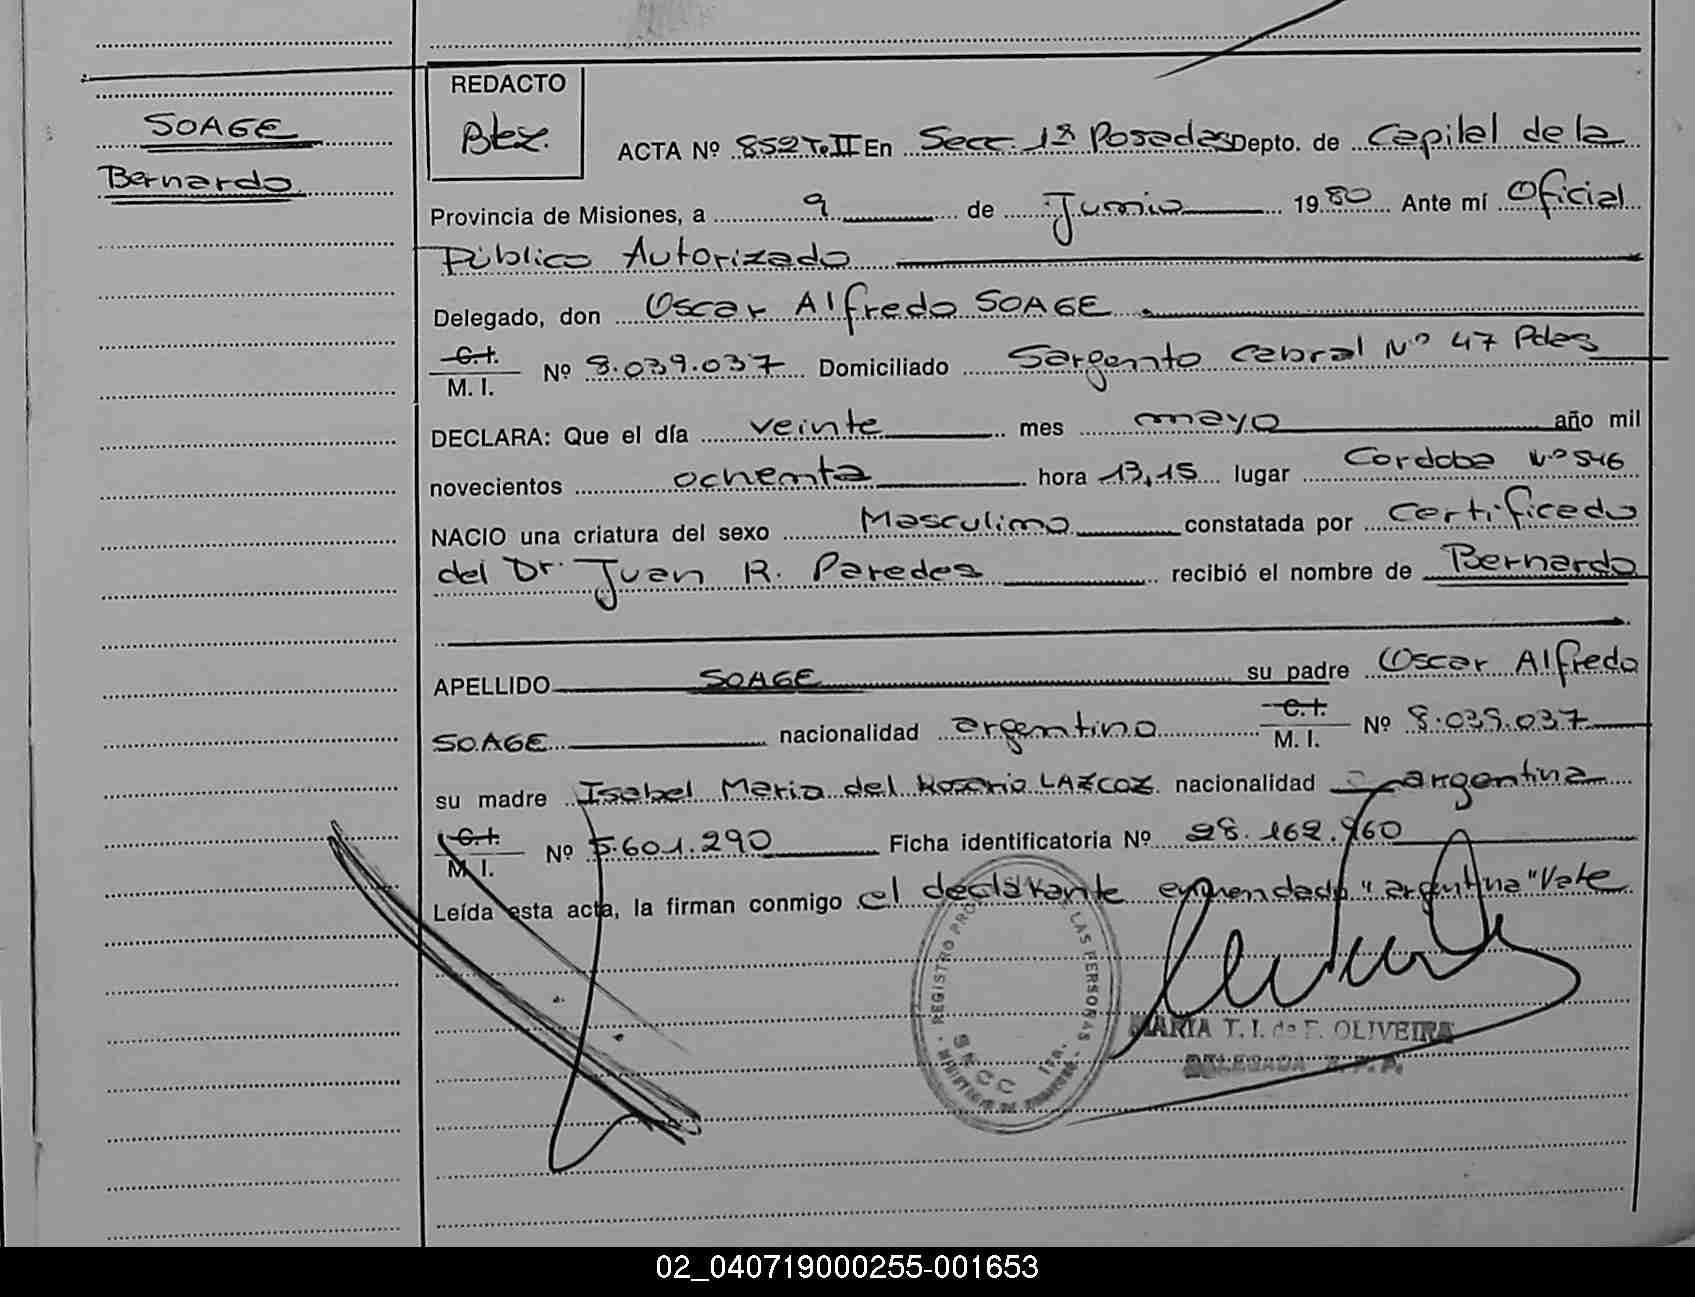 REDACTO
SOAGE
Bernardo
ACTA Nº 852 T. II En Secc. 1ª Posadas Depto. de Capital de la
Provincia de Misiones, a 9 de Junio 1980 Ante mí Oficial
Público Autorizado
Delegado, don Oscar Alfredo SOAGE
C.I.
M. I. Nº 8.039.037 Domiciliado Sargento Cabral Nº 47 Pdas
DECLARA: Que el día veinte mes mayo año mil
novecientos ochenta hora 13,15 lugar Cordoba Nº 546
NACIO una criatura del sexo Masculino constatada por Certificado
del Dr. Juan R. Paredes recibió el nombre de Bernardo
APELLIDO SOAGE su padre Oscar Alfredo
SOAGE nacionalidad argentino C.I. M. I. Nº 8.039.037
su madre Isabel Maria del Rosario LAZCOZ nacionalidad argentina
C.I.
M. I. Nº 5.601.290 Ficha identificatoria Nº 28.162.960
Leída esta acta, la firman conmigo el declarante enmendado "argentina" Vale
REGISTRO LAS PERSONAS
SECC 1ra.
MARIA T. I. de F. OLIVEIRA
DELEGADA R. P. P.
02_040719000255-001653